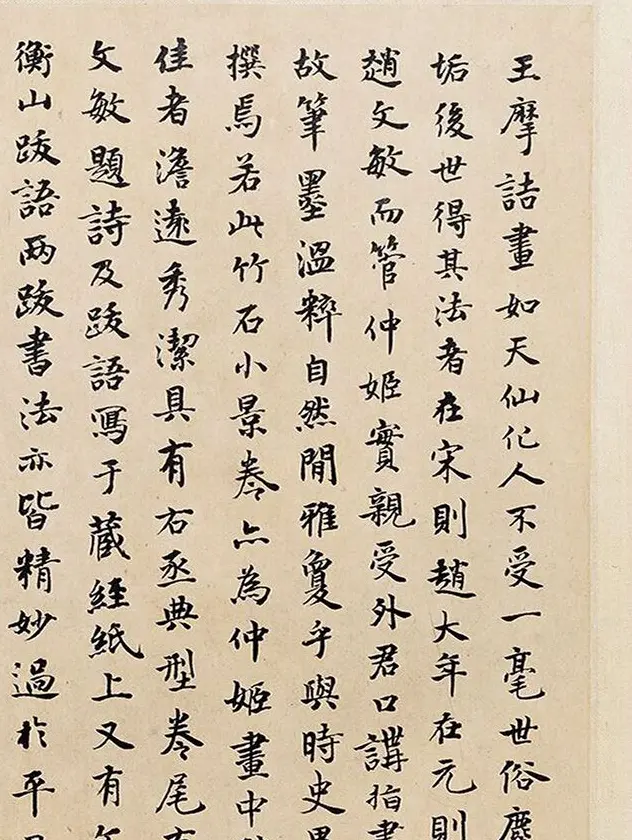 王摩詰畫如天仙化人不受一毫世俗塵
垢後世得其法者在宋則趙大年在元則
趙文敏而管仲姬實親受外君口講指畫
故筆墨溫粹自然閒雅敻乎與時史異
撰焉若此竹石小景卷亦為仲姬畫中
佳者澹遠秀潔具有右丞典型卷尾有
文敏題詩及跋語寫于藏經紙上又有
衡山跋語兩跋書法亦皆精妙過於平